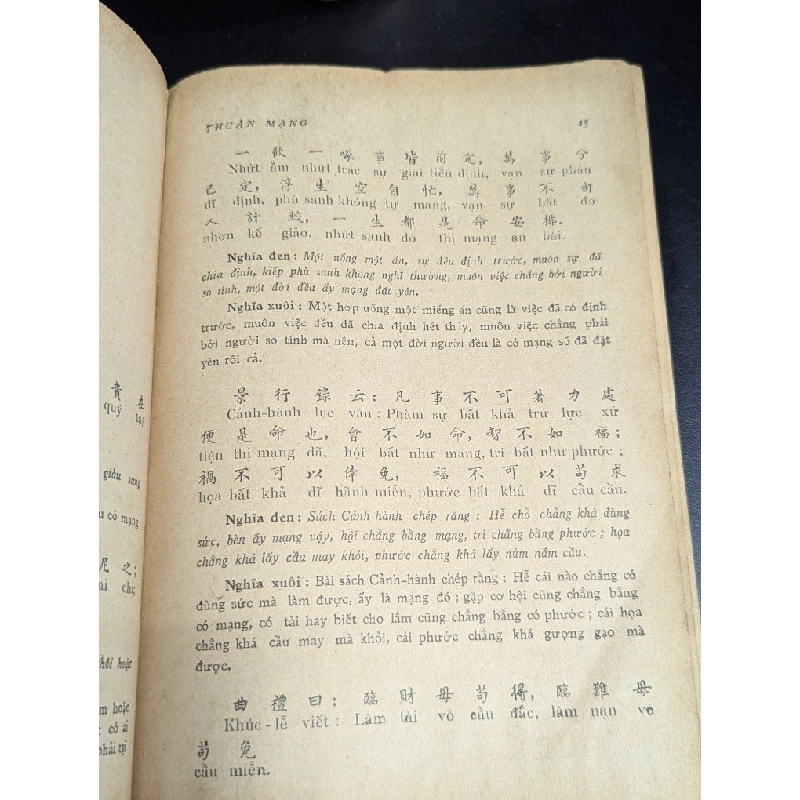 THUẬN MẠNG 45
一 飲 一 啄 事 皆 前 定, 萬 事 分
Nhứt ẩm nhứt trác sự giai tiền định, vạn sự phân
已 定, 浮 生 空 自 忙, 萬 事 不 由
dĩ định, phù sanh không tự mang, vạn sự bất do
人 計 較, 一 生 都 是 命 安 排.
nhơn kế giảo, nhứt sanh đo thị mạng an bài.
Nghĩa đen : Một uống một ăn, sự đều định trước, muôn sự đã
chia định, kiếp phù sanh không nghĩ thường, muôn việc chẳng bởi người
so tính, một đời đều ấy mạng đặt yên.
Nghĩa xuôi : Một hớp uống một miếng ăn cũng là việc đã có định
trước, muôn việc đều đã chia định hết thảy, muôn việc chẳng phải
bởi người so tính mà nên, cả một đời người đều là có mạng số đã đặt
yên rồi cả.
景 行 錄 云 : 凡 事 不 可 著 力 處
Cảnh-hành lục vân : Phàm sự bất khả trư lực xử
便 是 命 也, 會 不 如 命, 智 不 如 福 ;
tiện thị mạng dã, hội bất như mạng, trí bất như phước ;
禍 不 可 以 倖 免, 福 不 可 以 苟 求
họa bất khả dĩ hãnh miễn, phước bất khả dĩ cẩu cầu.
Nghĩa đen : Sách Cảnh-hành chép rằng : Hễ chỗ chẳng khá dùng
sức, bèn ấy mạng vậy, hội chẳng bằng mạng, trí chẳng bằng phước ; họa
chẳng khá lấy cầu may khỏi, phước chẳng khá lấy nắm cầu.
Nghĩa xuôi : Bài sách Cảnh-hành chép rằng : Hễ cái nào chẳng có
dùng sức mà làm được, ấy là mạng đó ; gặp cơ hội cũng chẳng bằng
có mạng, có tài hay biết cho lắm cũng chẳng bằng có phước ; cái họa
chẳng khá cầu may mà khỏi, cái phước chẳng khá gượng gạo mà
được.
曲 禮 曰 : 臨 財 毋 苟 得, 臨 難 毋
Khúc-lễ viết : Lâm tài vô cẩu đắc, lâm nạn vô
苟 免
cẩu miễn.
貴 在
quý tại
giàu sang
có mạng
尼 之;
ni chi;
hoặc
hoặc
; có ai
phải tại